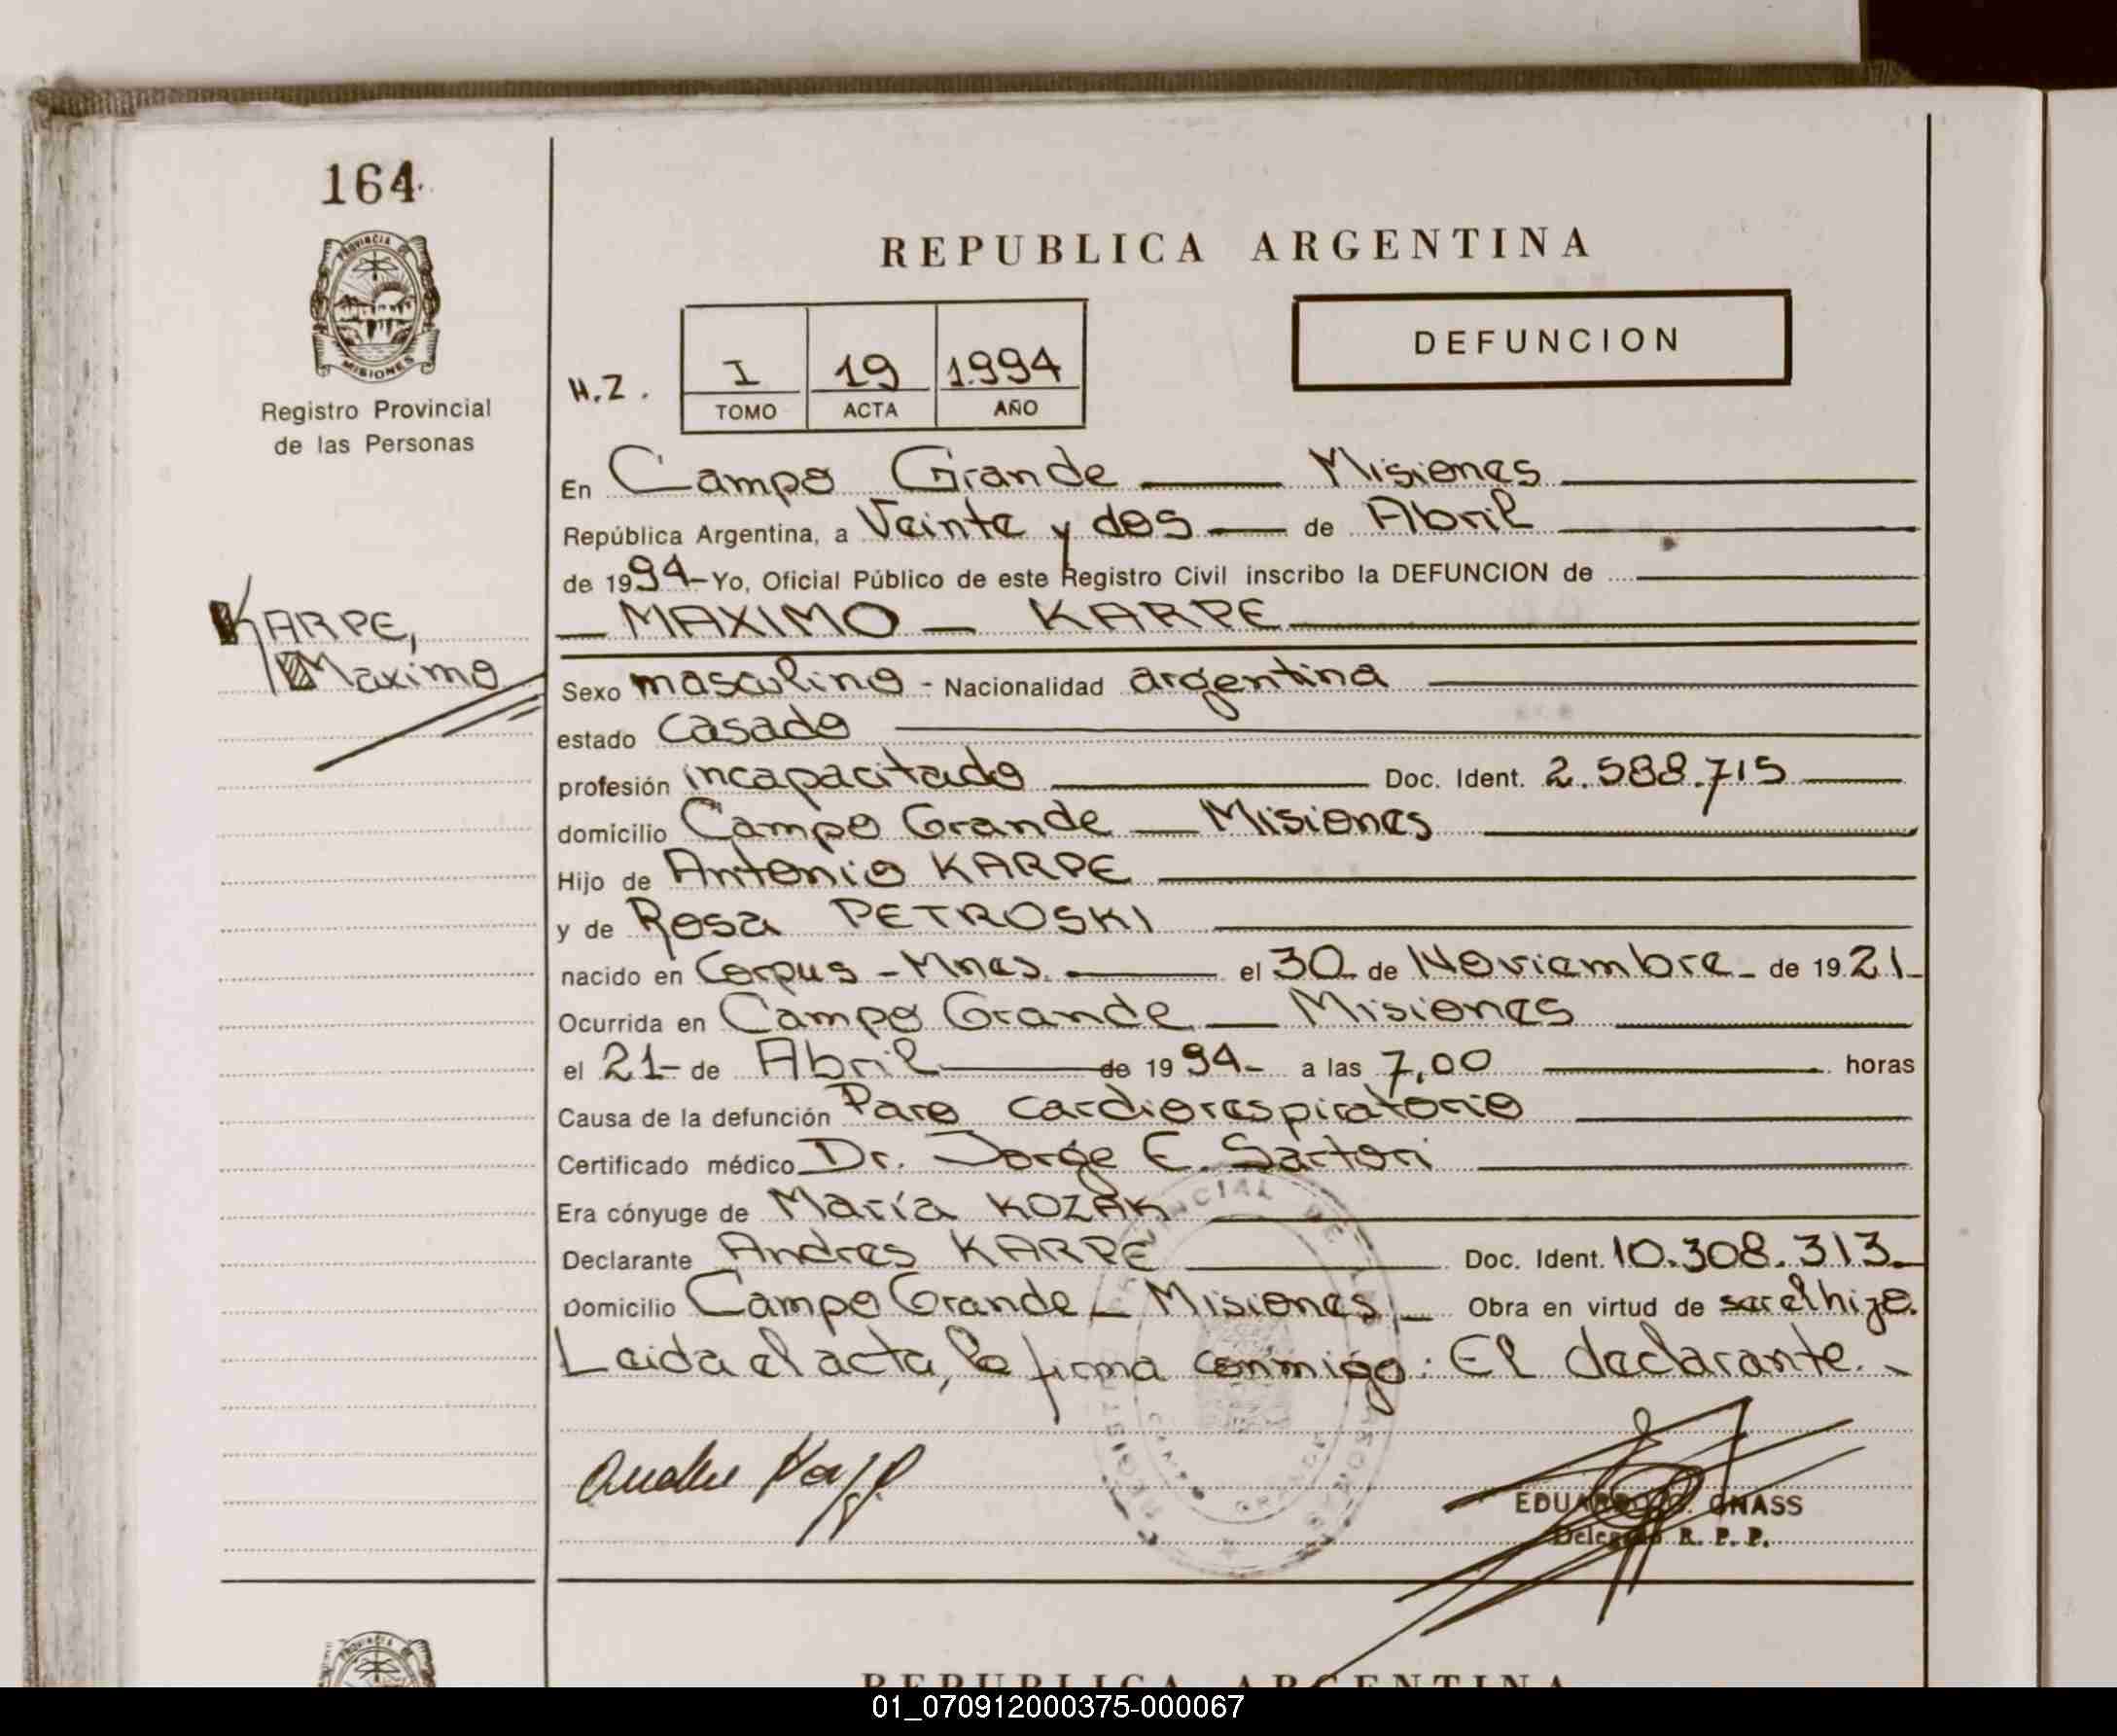 164
PROVINCIA DE
MISIONES
Registro Provincial
de las Personas
KARPE,
Maximo
REPUBLICA ARGENTINA
DEFUNCION
H.Z. I 19 1.994
TOMO ACTA AÑO
En Campo Grande Misiones
República Argentina, a Veinte y dos de Abril
de 1994- Yo, Oficial Público de este Registro Civil inscribo la DEFUNCION de
MAXIMO - KARPE
Sexo masculino - Nacionalidad argentina
estado casado
profesión incapacitado Doc. Ident. 2.588.715
domicilio Campo Grande - Misiones
Hijo de Antonio KARPE
y de Rosa PETROSKI
nacido en Corpus - Mnes. el 30 de Noviembre - de 1921-
Ocurrida en Campo Grande - Misiones
el 21- de Abril de 1994- a las 7,00 horas
Causa de la defunción Paro cardiorespiratorio
Certificado médico Dr. Jorge E. Sartori
Era cónyuge de María KOZAK
Declarante Andres KARPE Doc. Ident. 10.308.313.-
Domicilio Campo Grande - Misiones - Obra en virtud de ser el hijo.
Leida el acta, la firma conmigo: El declarante.-
EDUARDO GNASS
Delegado R. P. P.
REPUBLICA ARGENTINA
01_070912000375-000067